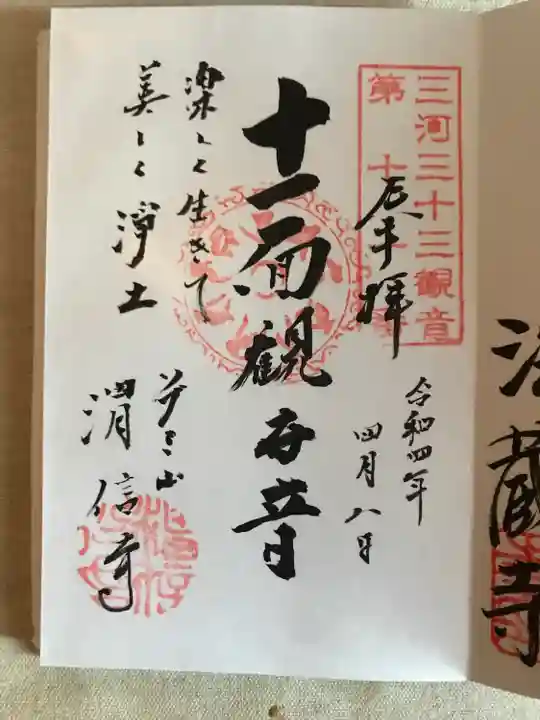 三河三十三観音
第十
奉拝
令和四年
四月八日
十一面観世音
楽しく生きて
美しく浄土
渭信寺
蔵寺